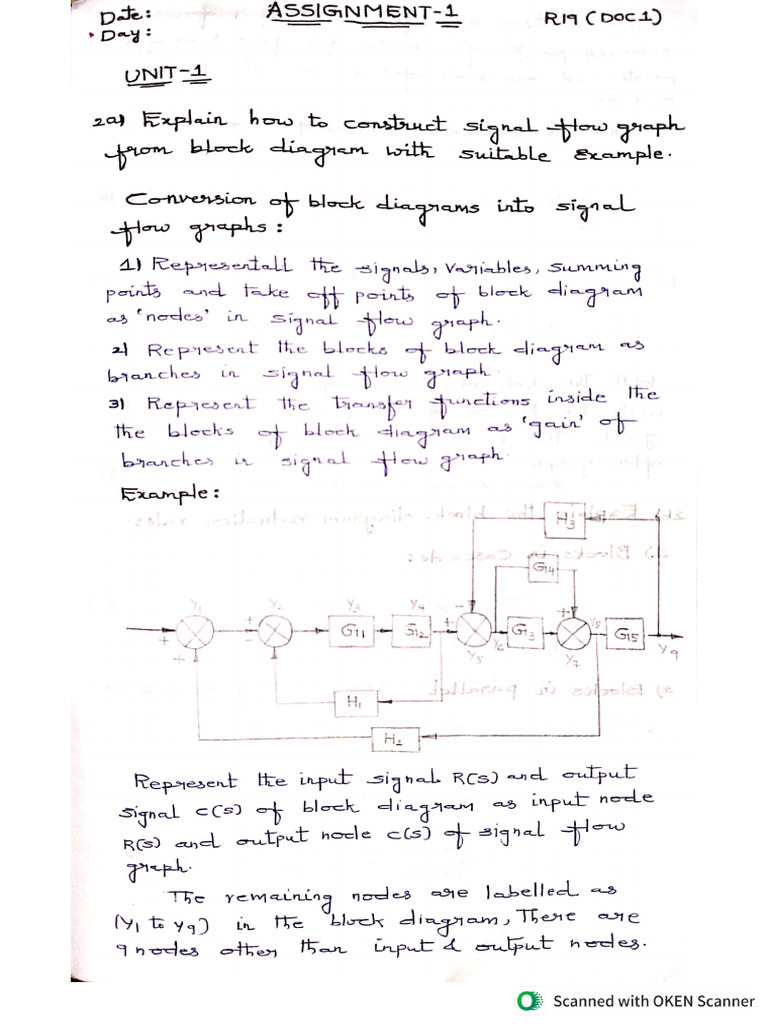 Date:
ASSIGNMENT-1
R19 (DOC1)
Day:
UNIT-1
2a) Explain how to construct signal flow graph
from block diagram with suitable example.
Conversion of block diagrams into signal
flow graphs:
1) Represent all the signals, variables, summing
points and take off points of block diagram
as 'nodes' in signal flow graph.
2) Represent the blocks of block diagram as
branches in signal flow graph.
3) Represent the transfer functions inside the
the blocks of block diagram as 'gain' of
branches in signal flow graph.
Example:
H3
G4
Y1 Y2 Y3 Y4
+ + G1 G2 + - G3 + Y8 G5
+ - Y5 Y6 Y7 Y9
+
H1
H2
Represent the input signal R(s) and output
signal c(s) of block diagram as input node
R(s) and output node c(s) of signal flow
graph.
The remaining nodes are labelled as
(y1 to y9) in the block diagram, There are
9 nodes other than input & output nodes.
Scanned with OKEN Scanner